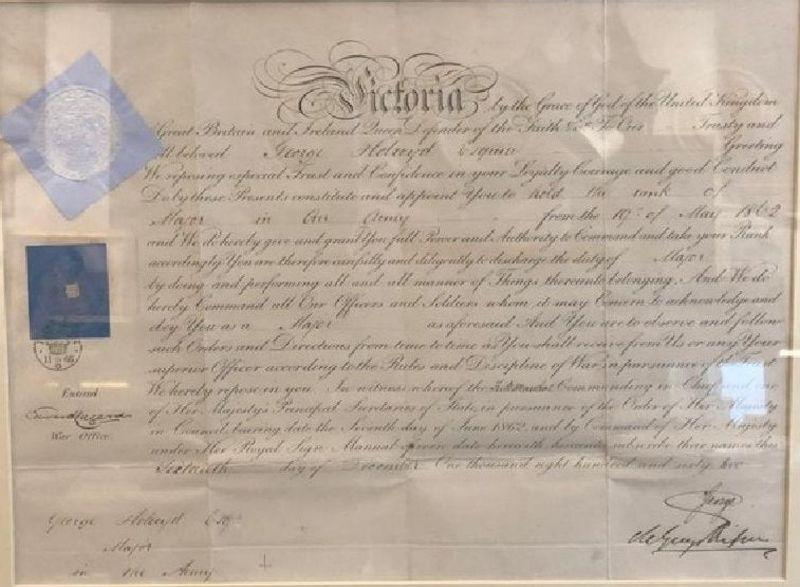 Victoria by the Grace of God of the United Kingdom
Great Britain and Ireland Queen Defender of the Faith &c. To Our Trusty and
well beloved George Holroyd Esquire Greeting
We reposing especial Trust and Confidence in your Loyalty Courage and good Conduct
Do by these Presents constitute and appoint You to hold the rank of
Major in Our Army from the 10th of May 1862
and We do hereby give and grant You full Power and Authority to Command and take your Rank
accordingly You are therefore carefully and diligently to discharge the duty of Major
by doing and performing all and all manner of Things thereunto belonging And We do
hereby Command all Our Officers and Soldiers whom it may Concern to acknowledge and
obey You as a Major as aforesaid And You are to observe and follow
such Orders and Directions from time to time as You shall receive from Us or any Your
superior Officer according to the Rules and Discipline of War in pursuance of the Trust
We hereby repose in you. In witness whereof the Commanding in Chief and one
of Her Majesty's Principal Secretaries of State in pursuance of the Order of Her Majesty
in Council bearing date the Seventh day of June 1862 and by Command of Her Majesty
under Her Royal Sign Manual given date herewith hereunto subscribe their names this
Sixteenth day of December One thousand eight hundred and sixty
Enterd
War Office.
George
George Holroyd Esqr
Major
in the Army